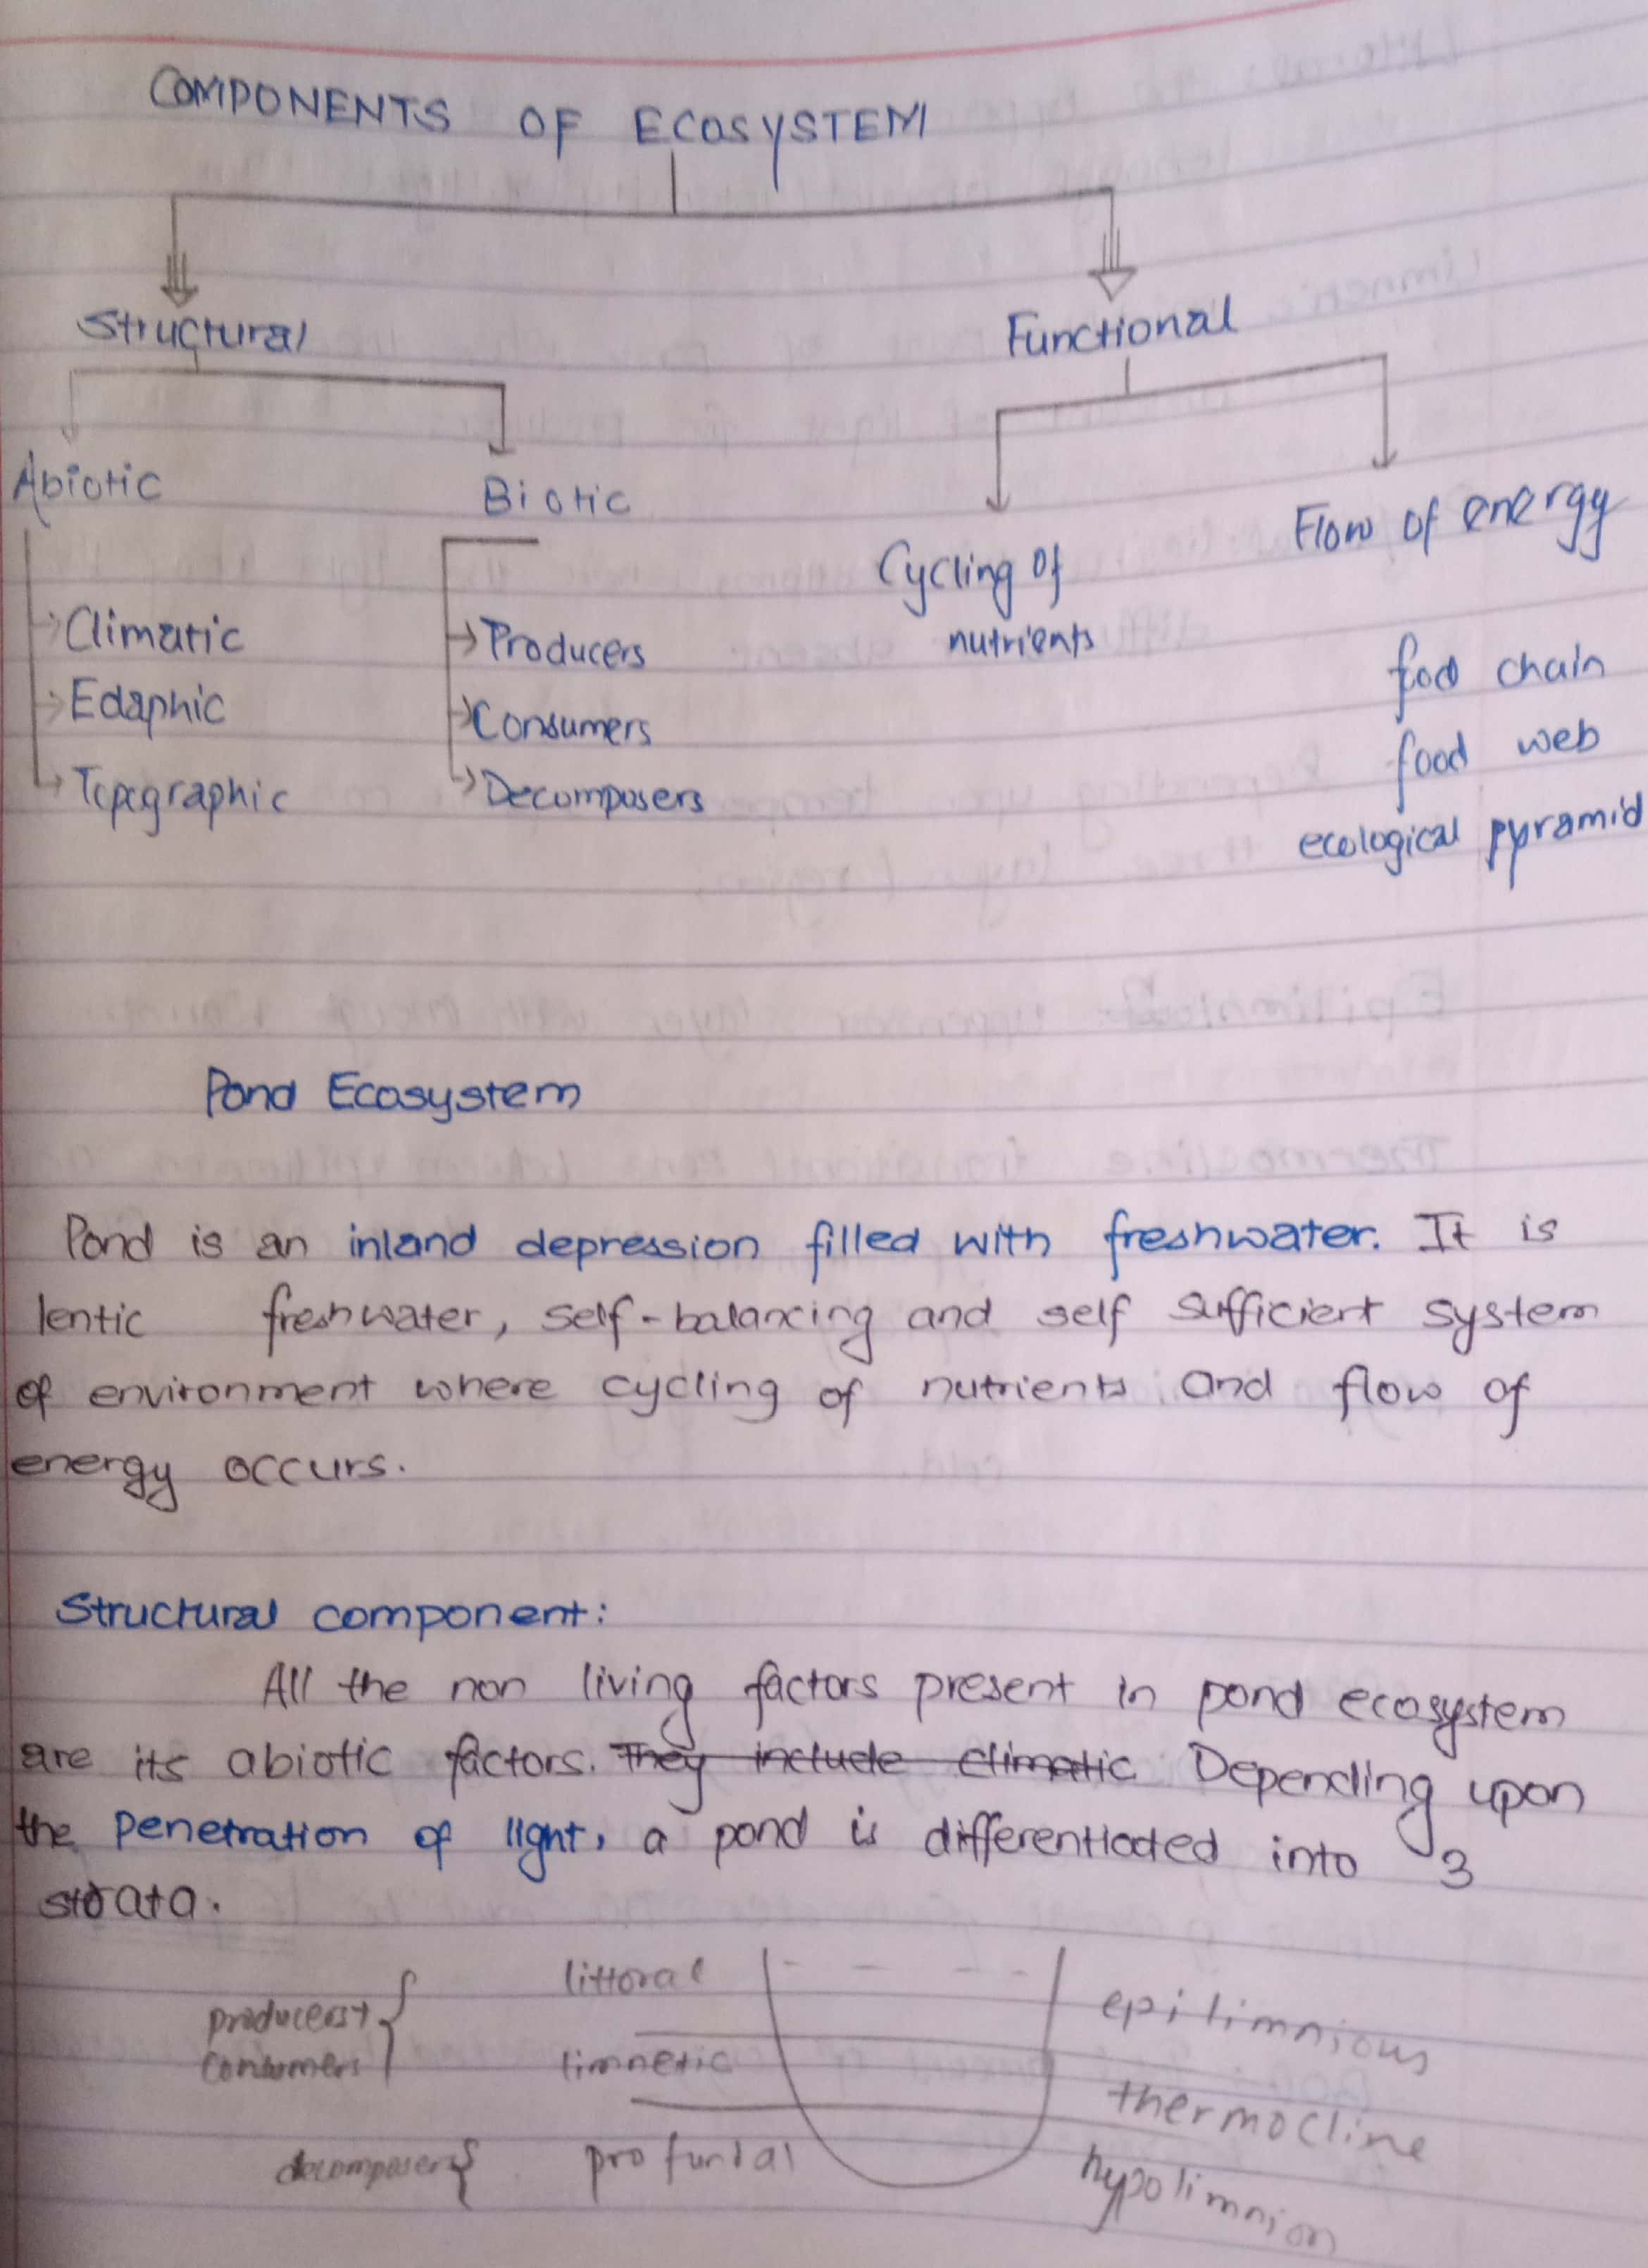 COMPONENTS OF ECOSYSTEM
Structural
Functional
Abiotic
Biotic
Cycling of
nutrients
Flow of energy
Climatic
Edaphic
Topographic
Producers
Consumers
Decomposers
food chain
food web
ecological pyramid
Pond Ecosystem
Pond is an inland depression filled with freshwater. It is
lentic freshwater, self-balancing and self sufficient system
of environment where cycling of nutrients and flow of
energy occurs.
Structural component:
All the non living factors present in pond ecosystem
are its abiotic factors. They include climatic Depending upon
the penetration of light, a pond is differentiated into 3
strata.
producers+
consumers
decomposers
littoral
limnetic
profundal
epilimnious
thermocline
hypolimnion